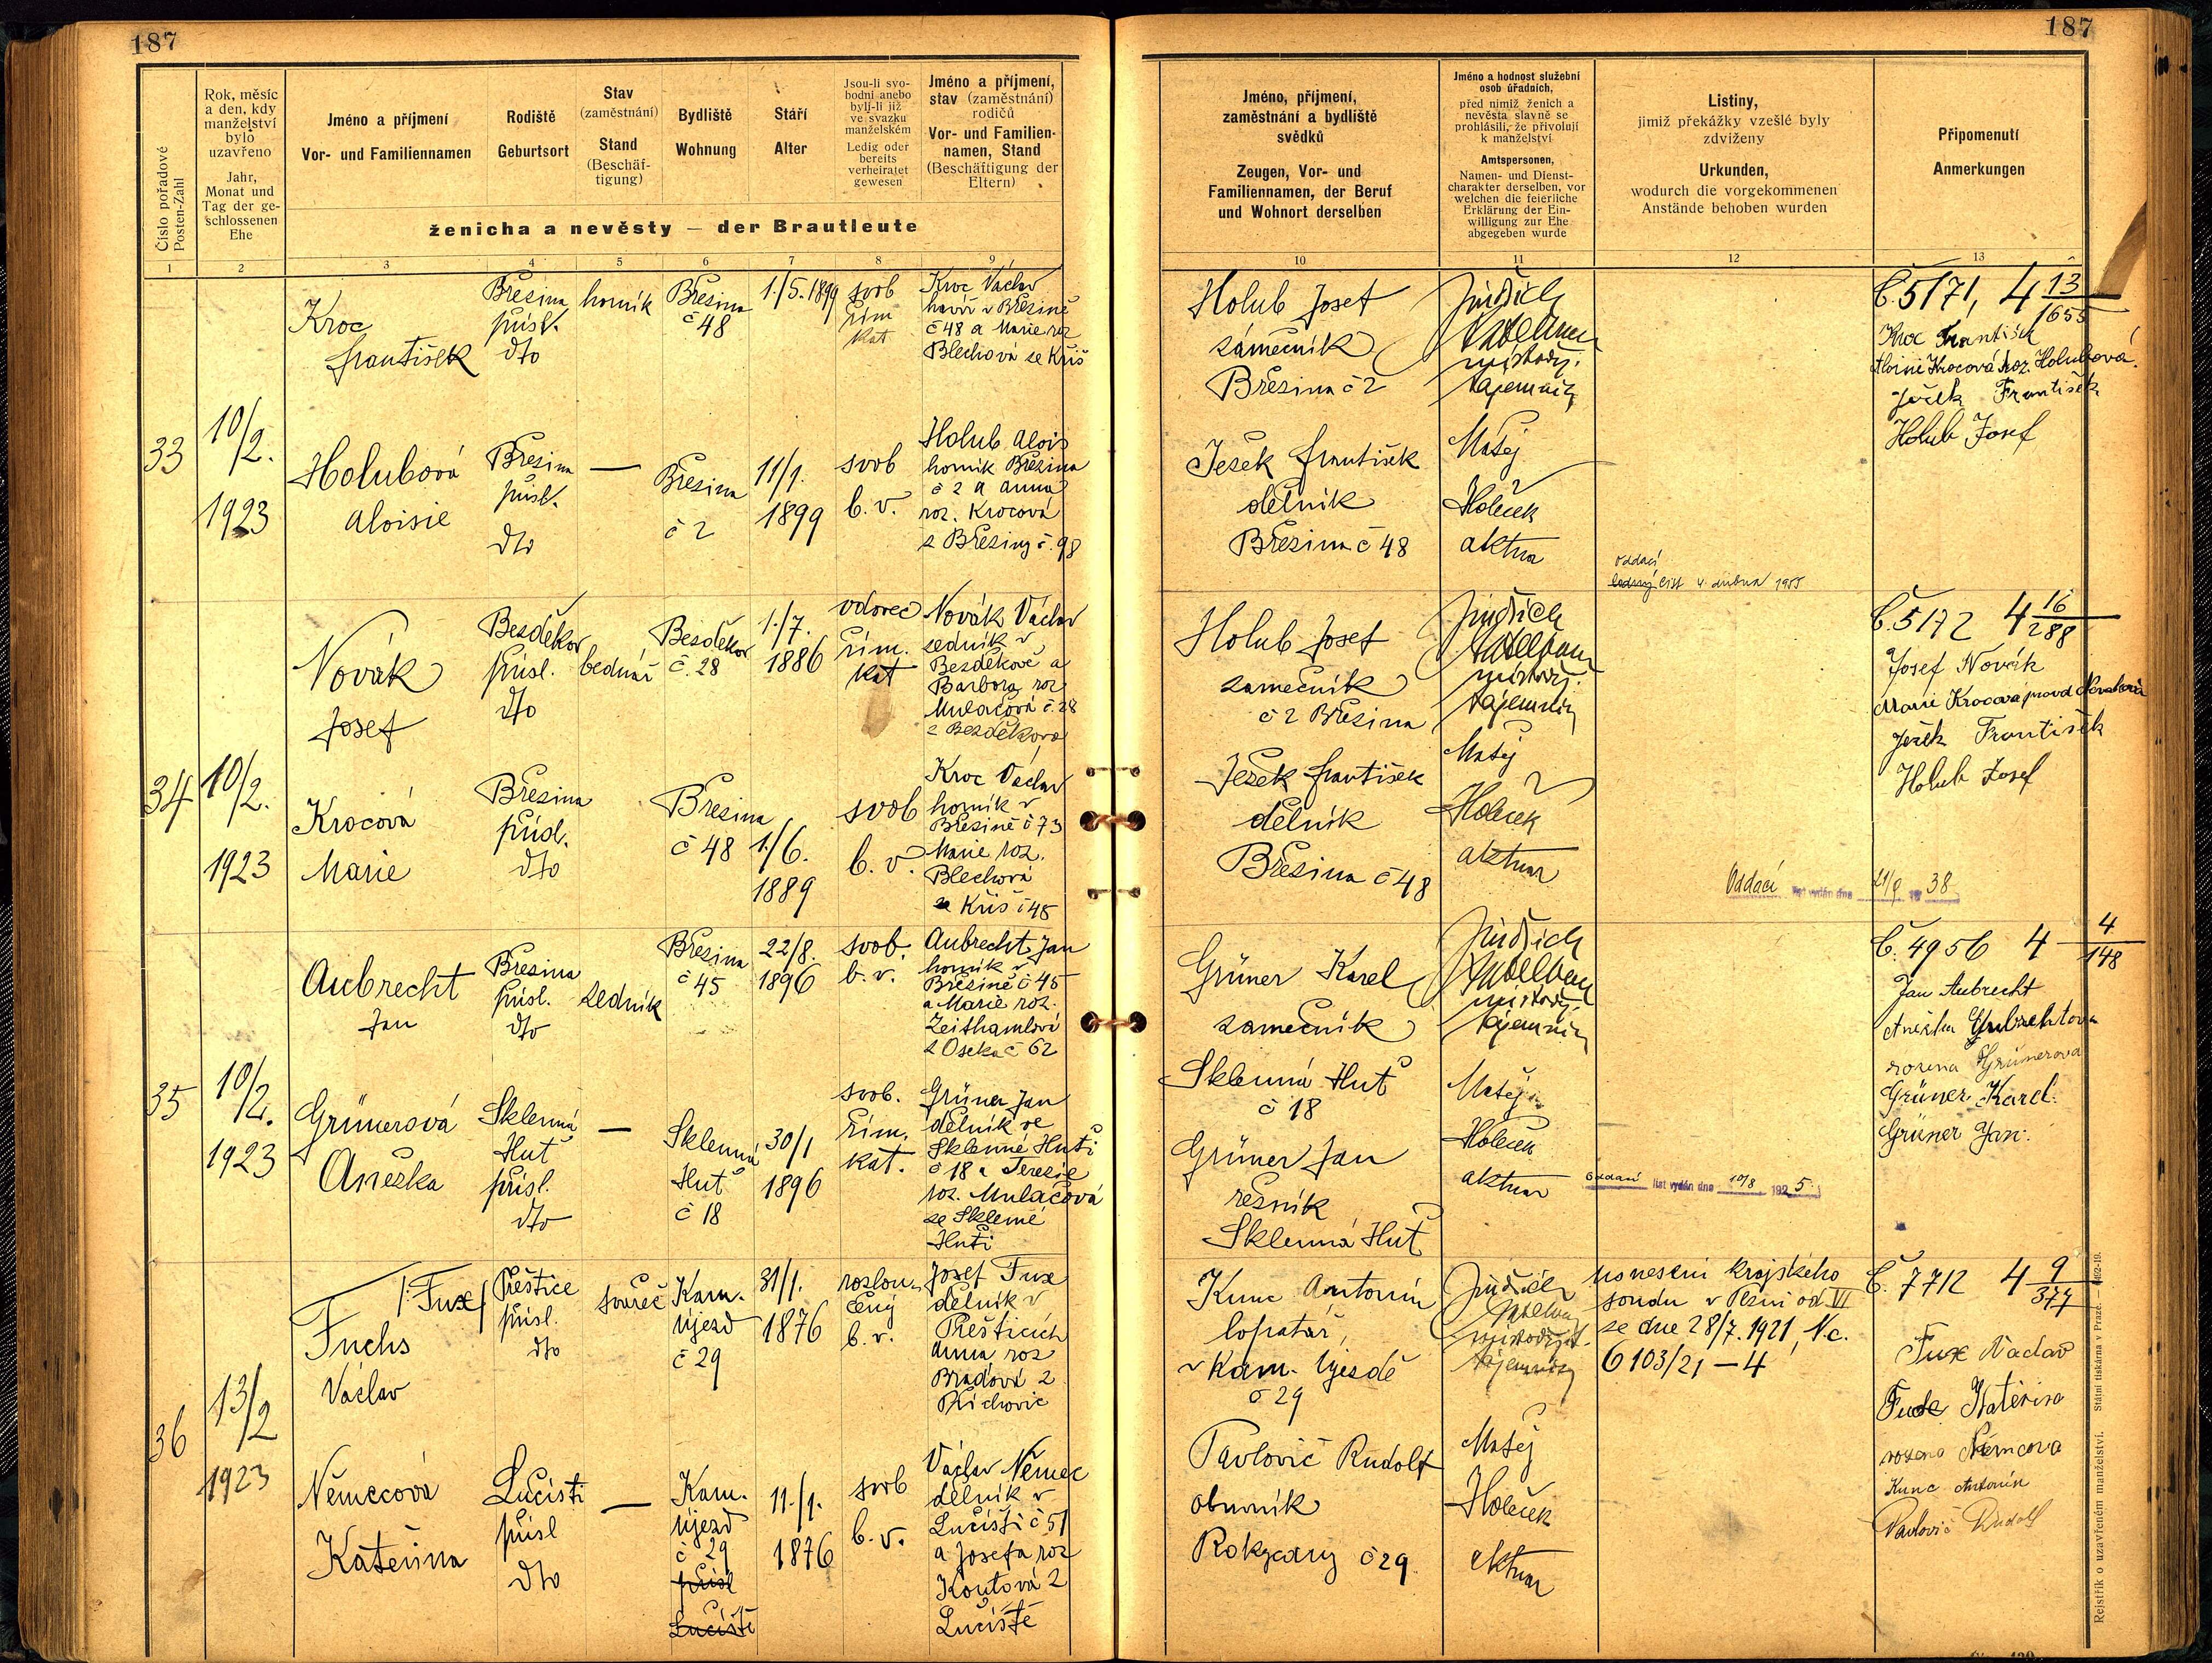 187
187
Číslo pořadové
Posten-Zahl
Rok, měsíc
a den, kdy
manželství
bylo
uzavřeno
Jahr,
Monat und
Tag der ge-
schlossenen
Ehe
Jméno a příjmení
Vor- und Familiennamen
Rodiště
Geburtsort
Stav
(zaměstnání)
Stand
(Beschäf-
tigung)
Bydliště
Wohnung
Stáří
Alter
Jsou-li svo-
bodni anebo
byli-li již
ve svazku
manželském
Ledig oder
bereits
verheiratet
gewesen
Jméno a příjmení,
stav (zaměstnání)
rodičů
Vor- und Familien-
namen, Stand
(Beschäftigung der
Eltern)
ženicha a nevěsty — der Brautleute
1 2 3 4 5 6 7 8 9
Jméno, příjmení,
zaměstnání a bydliště
svědků
Zeugen, Vor- und
Familiennamen, der Beruf
und Wohnort derselben
Jméno a hodnost služební
osob úřadních,
před nimiž ženich a
nevěsta slavně se
prohlásili, že přivolují
k manželství
Amtspersonen,
Namen- und Dienst-
charakter derselben, vor
welchen die feierliche
Erklärung der Ein-
willigung zur Ehe
abgegeben wurde
Listiny,
jimiž překážky vzešlé byly
zdviženy
Urkunden,
wodurch die vorgekommenen
Anstände behoben wurden
Připomenutí
Anmerkungen
10 11 12 13
33
10/2.
1923
Kroc
František
Březina
přísl.
dto
horník
Březina
č 48
1./5. 1899
svob
řím
kat
Kroc Václav
havíř v Březině
č 48 a Marie roz
Blechová ze Kříš
Holubová
Aloisie
Březina
přísl.
dto
—
Březina
č 2
11/1.
1899
svob
b. v.
Holub Alois
horník Březina
č 2 a Anna
roz. Krocová
z Březiny č. 98
Holub Josef
zámečník
Březina č 2
Ježek František
dělník
Březina č 48
Jindřich
místodrž.
tajemník
Matěj
Holeček
aktuar
oddací
list 4. dubna 1955
Č. 5171, 4 13/1655
Kroc František
Aloisie Krocová roz. Holubová.
Ježek František
Holub Josef
34
10/2.
1923
Novák
Josef
Bezděkov
přísl.
dto
bednář
Bezděkov
č. 28
1./7.
1886
vdovec
řím.
kat
Novák Václav
zedník v
Bezděkově a
Barbora roz
Mulačová č. 28
z Bezděkova
Krocová
Marie
Březina
přísl.
dto
Březina
č 48
1./6.
1889
svob
b. v.
Kroc Václav
horník v
Březině č 73
Marie roz.
Blechová
ze Kříš č 45
Holub Josef
zámečník
č 2 Březina
Ježek František
dělník
Březina č 48
Jindřich
místodrž.
tajemník
Matěj
Holeček
aktuar
Oddací list vydán dne 21/9 1938
Č. 5172 4 16/288
Josef Novák
Marie Krocová provd Nováková
Ježek František
Holub Josef
35
10/2.
1923
Aubrecht
Jan
Březina
přísl.
dto
zedník
Březina
č 45
22/8.
1896
svob.
b. v.
Aubrecht Jan
horník v
Březině č 45
a Marie roz.
Zeithamlová
z Oseka č 62
Grünerová
Anežka
Sklenná
Huť
přísl.
dto
—
Sklenná
Huť
č 18
30/1
1896
svob.
řím.
kat.
Grüner Jan
dělník ve
Sklenné Huti
č 18 a Terezie
roz. Mulačová
ze Sklenné
Huti
Grüner Karel
zámečník
Sklenná Huť
č 18
Grüner Jan
řezník
Sklenná Huť
Jindřich
místodrž.
tajemník
Matěj
Holeček
aktuar
Oddací list vydán dne 10/8 1925.
Č. 4956 4 4/148
Jan Aubrecht
Anežka Aubrechtova
rozena Grünerova
Grüner Karel.
Grüner Jan.
36
13/2
1923
/: Fux /
Fuchs
Václav
Přeštice
přísl.
dto
Kam.
újezd
č 29
31/1.
1876
rozlou-
čený
b. v.
Josef Fux
dělník v
Přešticích
Anna roz
Bradová z
Příchovic
Němecová
Kateřina
Lučišti
přísl
dto
—
Kam.
újezd
č 29
přísl
Lučiště
11./1.
1876
svob
b. v.
Václav Němec
dělník v
Lučišti č 51
a Josefa roz
Koutová z
Lučiště
Kunc Antonín
lopatář,
v Kam. Újezdě
č 29
Pavlovič Rudolf
obuvník
Rokycany č 29
Jindřich
místodržit.
tajemník
Matěj
Holeček
aktuar
usnesení krajského
soudu v Plzni od VI
ze dne 28/7. 1921, N.c.
6103/21 — 4
Č. 7712 4 9/377
Fux Václav
Fux Kateřina
rozena Němcova
Kunc Antonín
Pavlovič Rudolf
Rejstřík o uzavřeném manželství. Státní tiskárna v Praze.